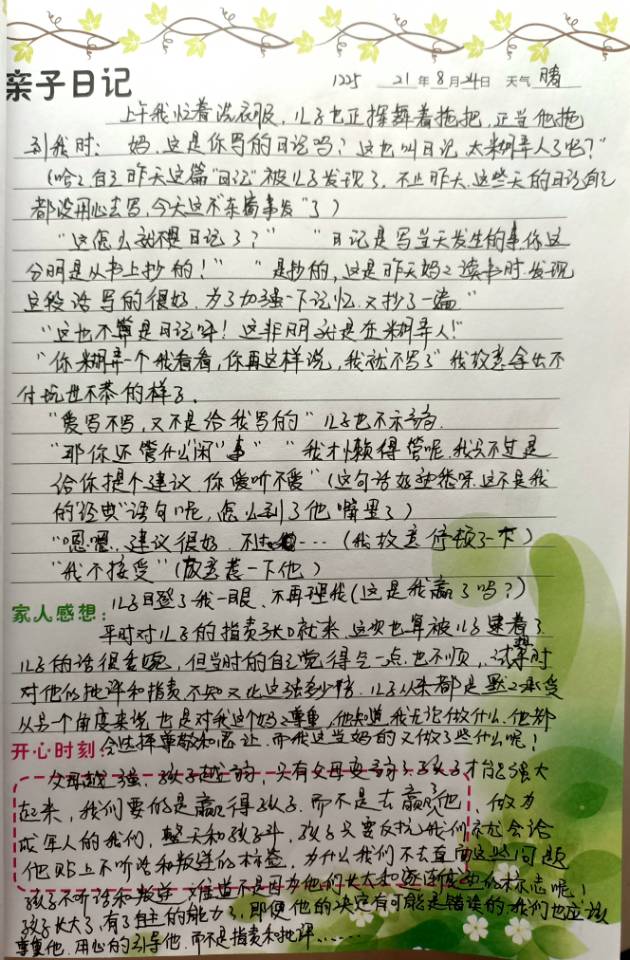 亲子日记 1225 21年8月24日 天气 晴
上午我忙着洗衣服,儿子也正挥舞着拖把,正当他拖
到我时:妈,这是你写的日记吗?这也叫日记,太糊弄人了吧?"
(哈哈,自己昨天这篇"日记"被儿子发现了,不止昨天,这些天的日记自己
都没用心去写,今天这不"东窗事发"了)
"这怎么就不是日记了?" "日记是写当天发生的事,你这
分明是从书上抄的!" "是抄的,这是昨天妈妈读书时,发现
这段话写的很好,为了加强一下记忆,又抄了一遍"
"这也不算是日记呀!这非明就是在糊弄人!"
"你糊弄一个我看看,你再这样说,我就不写了"我故意拿出不
付玩世不恭的样子。
"爱写不写,又不是给我写的"儿子也不示弱
"那你还管什么"闲"事" "我才懒得管呢,我只不过是
给你提个建议,你爱听不爱"(这句话好熟悉呀,这不是我
的"经典"语句呢,怎么到了他嘴里了)
"嗯嗯,建议很好,不过…(我故意停顿了一下)
"我不接受"(故意惹一下他)
儿子瞪了我一眼、不再理我(这是我赢了吗?)
家人感想:
平时对儿子的指责张口就来,这次也算被儿子逮着了
儿子的话很委婉,但当时的自己觉得还一点也不顺,试想平时
对他的批评和指责不知又比这强多少倍,儿子从来都是默默承受
从另一个角度来说,也是对我这个妈妈尊重,他知道,我无论做什么,他都
开心时刻:会选择尊敬和忍让,而我这当妈的又做了些什么呢!
父母越强,孩子越弱,只有父母变弱了,孩子才能强大
起来,我们要的是赢得孩子,而不是去赢了他,做为
成年人的我们,整天和孩子斗,孩子只要反抗,我们就会给
他贴上不听话和叛逆的标签,为什么我们不去直面这些问题
孩子不听话和叛逆,难道不是因为他们长大和逐渐成的标志呢!
孩子长大了,有了自主的能力了,即便他的决定有可能是错误的,我们也应该
尊重他,用心的引导他,而不是指责和批评……